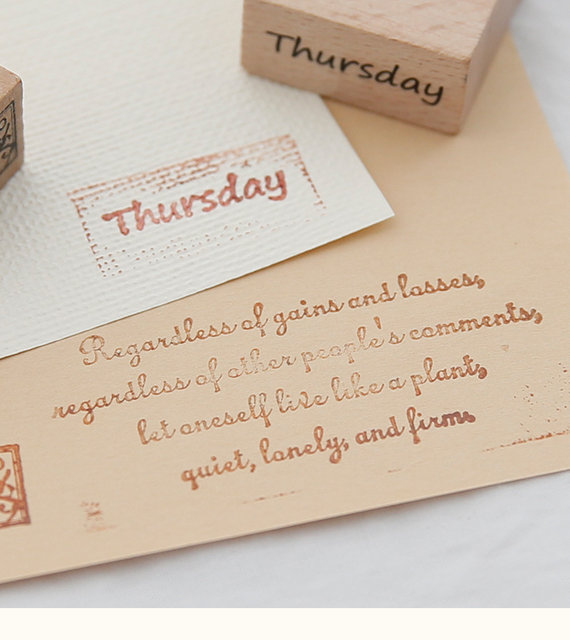 Thursday
Thursday
Regardless of gains and losses,
regardless of other people's comments,
let oneself live like a plant,
quiet, lonely, and firm